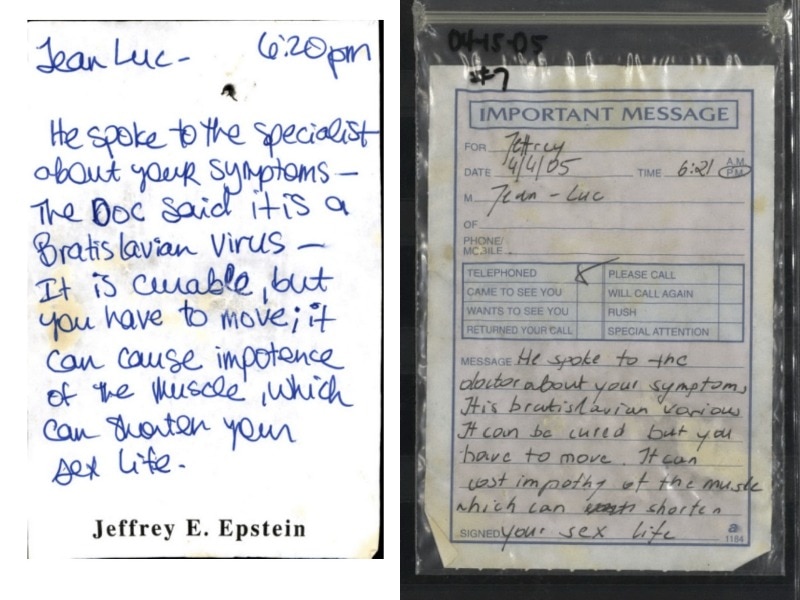 Jean Luc- 6:20pm
He spoke to the specialist
about your symptoms —
The Doc said it is a
Bratislavian virus —
It is curable, but
you have to move; it
can cause impotence
of the muscle, which
can shorten your
sex life.
Jeffrey E. Epstein
04-15-05
#7
IMPORTANT MESSAGE
FOR Jeffrey
DATE 4/4/05 TIME 6:21 A.M. P.M.
M Jean - Luc
OF
PHONE/
MOBILE
TELEPHONED PLEASE CALL
CAME TO SEE YOU WILL CALL AGAIN
WANTS TO SEE YOU RUSH
RETURNED YOUR CALL SPECIAL ATTENTION
MESSAGE He spoke to the
doctor about your symptoms
It is bratislavian various
It can be cured but you
have to move. It can
cost impathy of the muscle
which can shorten
SIGNED your sex life
a
1184